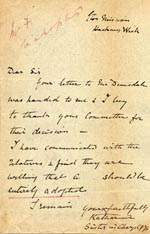 Eton Mission
Hackney Wick
Dear Sir
Your letter to Mr Dimsdale
was handed to me & I beg
to thank your Committee for
their decision —
I have communicated with the
relatives & find they are
willing that a should be
entirely adopted
I remain
Yours faithfully
Katherine
Sister in charge